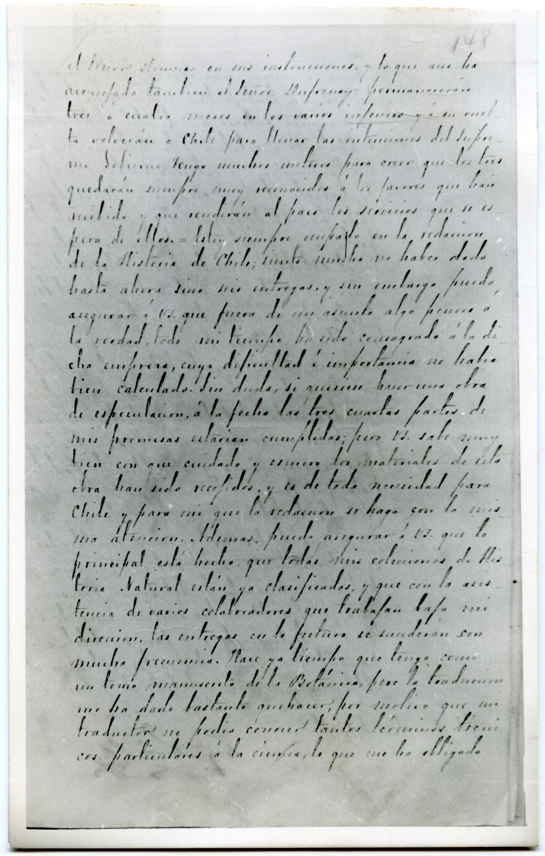 148
el Señor en sus instrucciones, y lo que me ha
aconsejado tambien el Señor Dufrenoy; permanecerán
tres o cuatro meses en los varios infiernos y a su vuel-
ta volverán a Chile para llenar las intenciones del supre-
mo Gobierno. Tengo muchos motivos para creer que los tres
quedarán siempre muy reconocidos á los favores que han
recibido y que renderán al pais los servicios que se es-
pera de ellos. = Estoy siempre ocupado en la redaccion
de la Historia de Chile; siento mucho no haber dado
hasta ahora sino seis entregas, y sin embargo puedo
asegurar á VS. que fuera de un asunto algo penoso á
la verdad, todo mi tiempo ha sido consagrado á la di
cha empresa, cuya dificultad é importancia no habia
bien calculado. Sin duda, si quisiese hacer una obra
de especulacion, á la fecha las tres cuartas partes, de
mis promesas estarian cumplidas; pero VS. sabe muy
bien con que cuidado y esmero los materiales de esta
obra han sido recojidos, y es de toda necesidad para
Chile y para mi que la redaccion se haga con la mis
ma atencion. Ademas, puedo asegurar á VS. que lo
principal está hecho, que todas mis colecciones, de His
toria Natural están ya clasificadas, y que con la asis-
tencia de varios colaboradores que trabajan bajo mi
direccion, las entregas en lo futuro se sucederán con
mucha frecuencia. Hace ya tiempo que tengo como
un tomo manuscrito de la Botánica, pero la traduccion
me ha dado bastante quehacer, por motivo que mi
traductor no podia conocer tantos términos técni
cos particulares á la ciencia, lo que me ha obligado